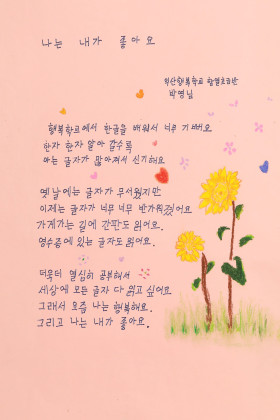 나는 내가 좋아요
익산행복학교 한얼초급반
박영님
행복학교에서 한글을 배워서 너무 기뻐요
한자 한자 알아 갈수록
아는 글자가 많아져서 신기해요
옛날에는 글자가 무서웠지만
이제는 글자가 너무 너무 반가워졌어요
가게가는 길에 간판도 읽어요.
영수증에 있는 글자도 읽어요.
더욱더 열심히 공부해서
세상에 모든 글자 다 읽고 싶어요
그래서 요즘 나는 행복해요.
그리고 나는 내가 좋아요.